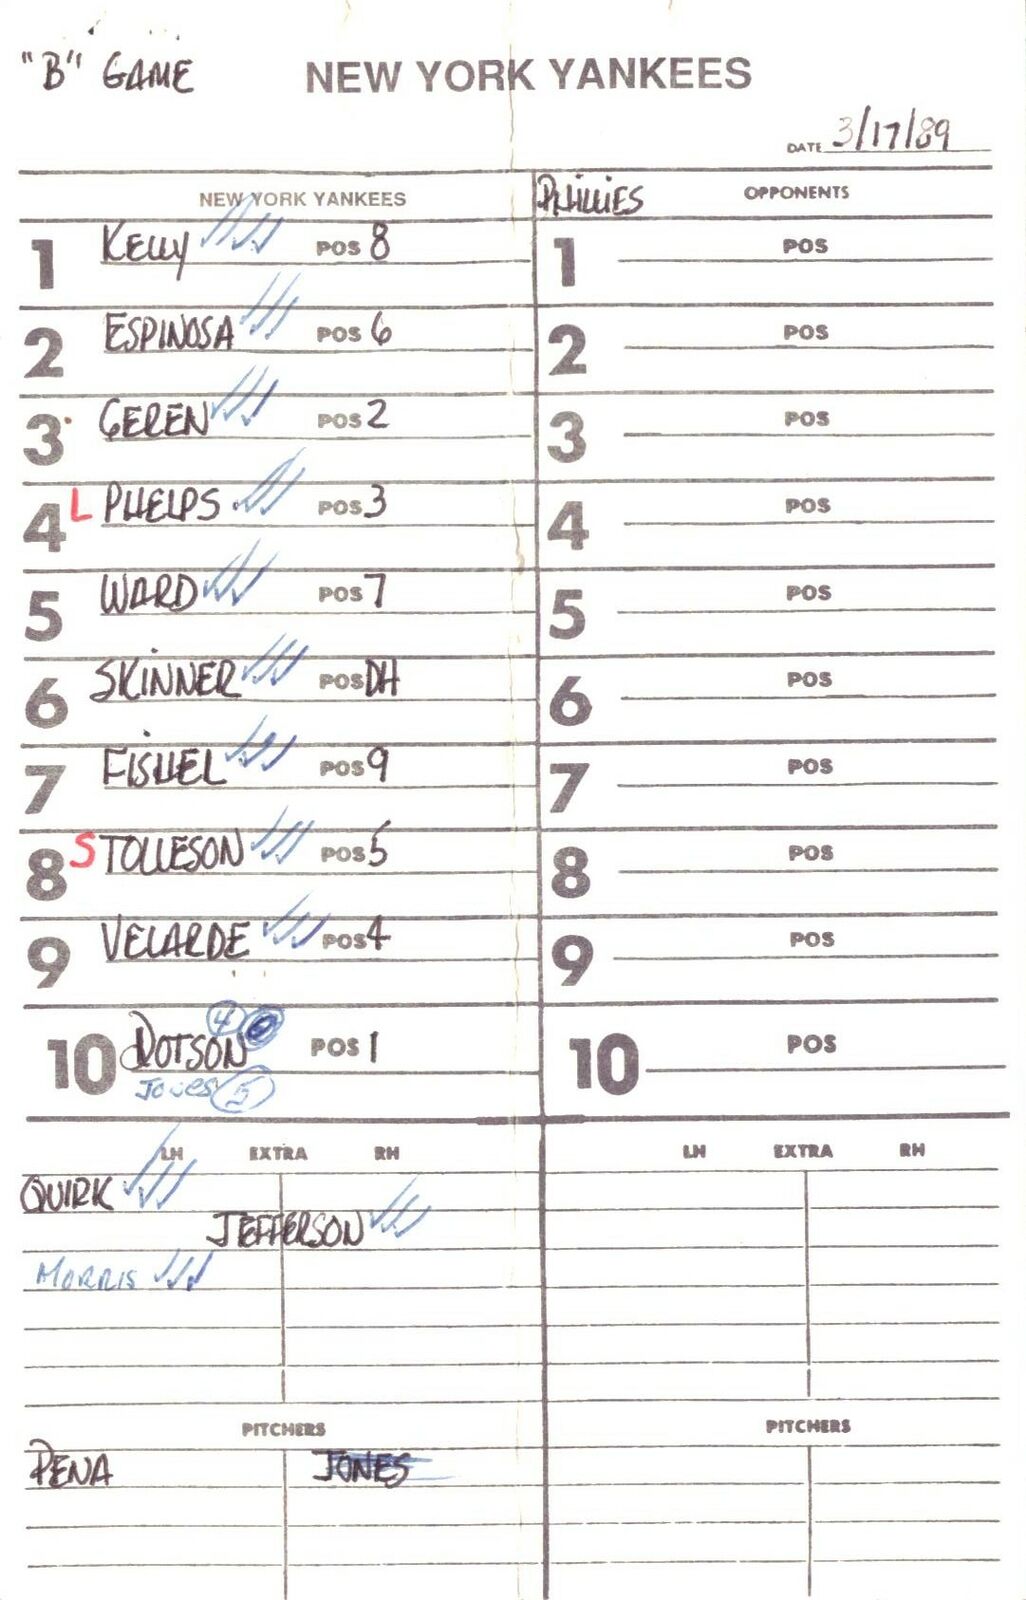 "B" GAME
NEW YORK YANKEES
DATE 3/17/89
NEW YORK YANKEES
1 KELLY POS 8
2 ESPINOSA POS 6
3 GEREN POS 2
4 L PHELPS POS 3
5 WARD POS 7
6 SKINNER POS DH
7 FISHEL POS 9
8 S TOLLESON POS 5
9 VELARDE POS 4
10 DOTSON 4 POS 1
JONES 5
LH EXTRA RH
QUIRK
JEFFERSON
MORRIS
PITCHERS
PENA JONES
PHILLIES OPPONENTS
1 POS
2 POS
3 POS
4 POS
5 POS
6 POS
7 POS
8 POS
9 POS
10 POS
LH EXTRA RH
PITCHERS